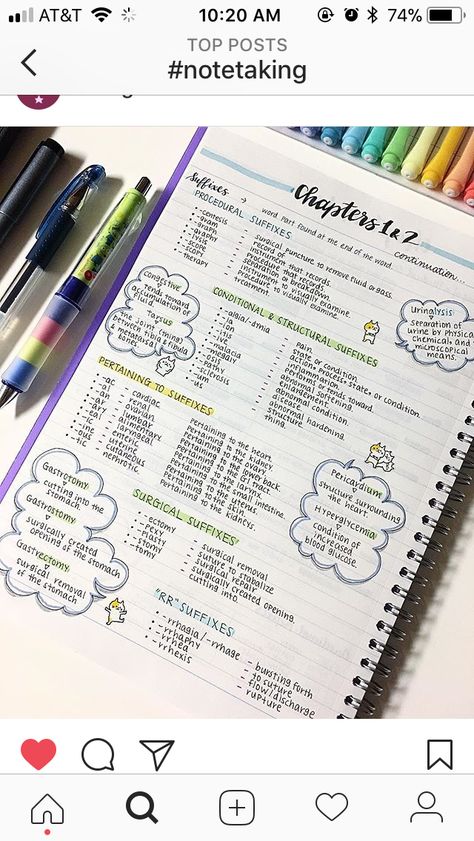 AT&T 10:20 AM 74%
TOP POSTS
#notetaking
Chapters 1 & 2
continuation...
Suffixes → word part found at the end of the word.
PROCEDURAL SUFFIXES
-centesis - surgical puncture to remove fluid or gas.
-gram - record of
-graph - instrument that records.
-graphy - procedure that records.
-lysis - separation or breakdown.
-scope - instrument to visually examine.
-scopy - procedure to visually examine.
-therapy - treatment.
Uringlysis
separation of
urine by physical
chemical, and
microscopical
means.
Congestive
tends toward
accumulation of
fluid
Tarsus
the joint (thing)
between tibia & fibula
& metatarsal
bones
CONDITIONAL & STRUCTURAL SUFFIXES
-algia/-dynia - pain.
-ia - state or condition.
-itis
-ive
-malacia
-megaly
-osis
-pathy
-sclerosis
-um
-us
inflammation.
pertains or tends toward.
abnormal softening.
enlargement
abnormal condition.
disease
abnormal hardening.
structure
thing.
PERTAINING TO SUFFIXES
-ac cardiac pertaining to the heart.
-al renal pertaining to the kidney.
-an ovarian pertaining to the ovary
-ar lumbar pertaining to the lower back.
-ary alimentary pertaining to the GI tract.
-eal laryngeal pertaining to the larynx.
-ic enteric pertaining to the small intestine.
-ine uterine pertaining to the uterus
-ous cutaneous pertaining to the skin
-tic nephrotic pertaining to the kidneys.
Gastrotomy
cutting into the
stomach
Gastrostomy
surgically created
opening of the stomach
Gastrectomy
surgical removal
of the stomach
Pericardium
structure surrounding
the heart.
Hyperglycemia
condition of
increased
blood glucose.
SURGICAL SUFFIXES
-ectomy - surgical removal
-pexy - suture to stabilize
-plasty - surgical repair
-stomy - surgically created opening.
-tomy - cutting into.
"RR" SUFFIXES
-rrhagia/-rrhage - bursting forth
-rrhaphy - to suture
-rrhea - flow/discharge
-rrhexis - rupture